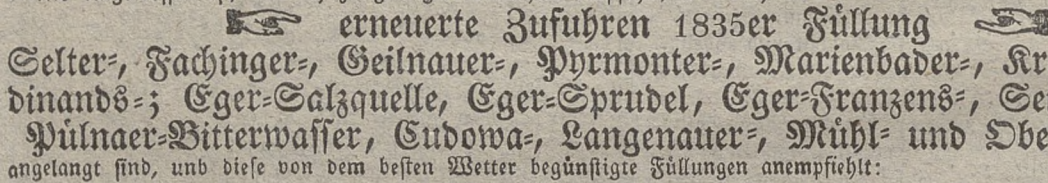 erneuerte Zufuhren 1835er Füllung
Selter-, Fachinger-, Geilnauer-, Pyrmonter-, Marienbader-, Kr
dinands-; Eger-Salzquelle, Eger-Sprudel, Eger-Franzens-, Se
Pülnaer-Bitterwasser, Cudowa-, Langenauer-, Mühl- und Obe
angelangt sind, und diese von dem besten Wetter begünstigte Füllungen anempfiehlt: